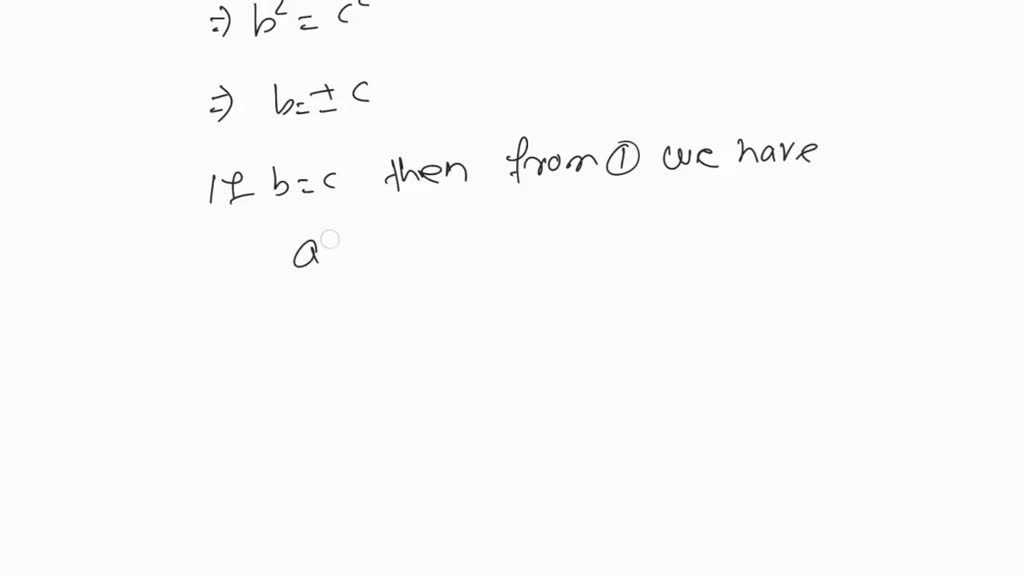 ⇒ b² = c²
⇒ b = ± c
If b = c then from ① we have
a